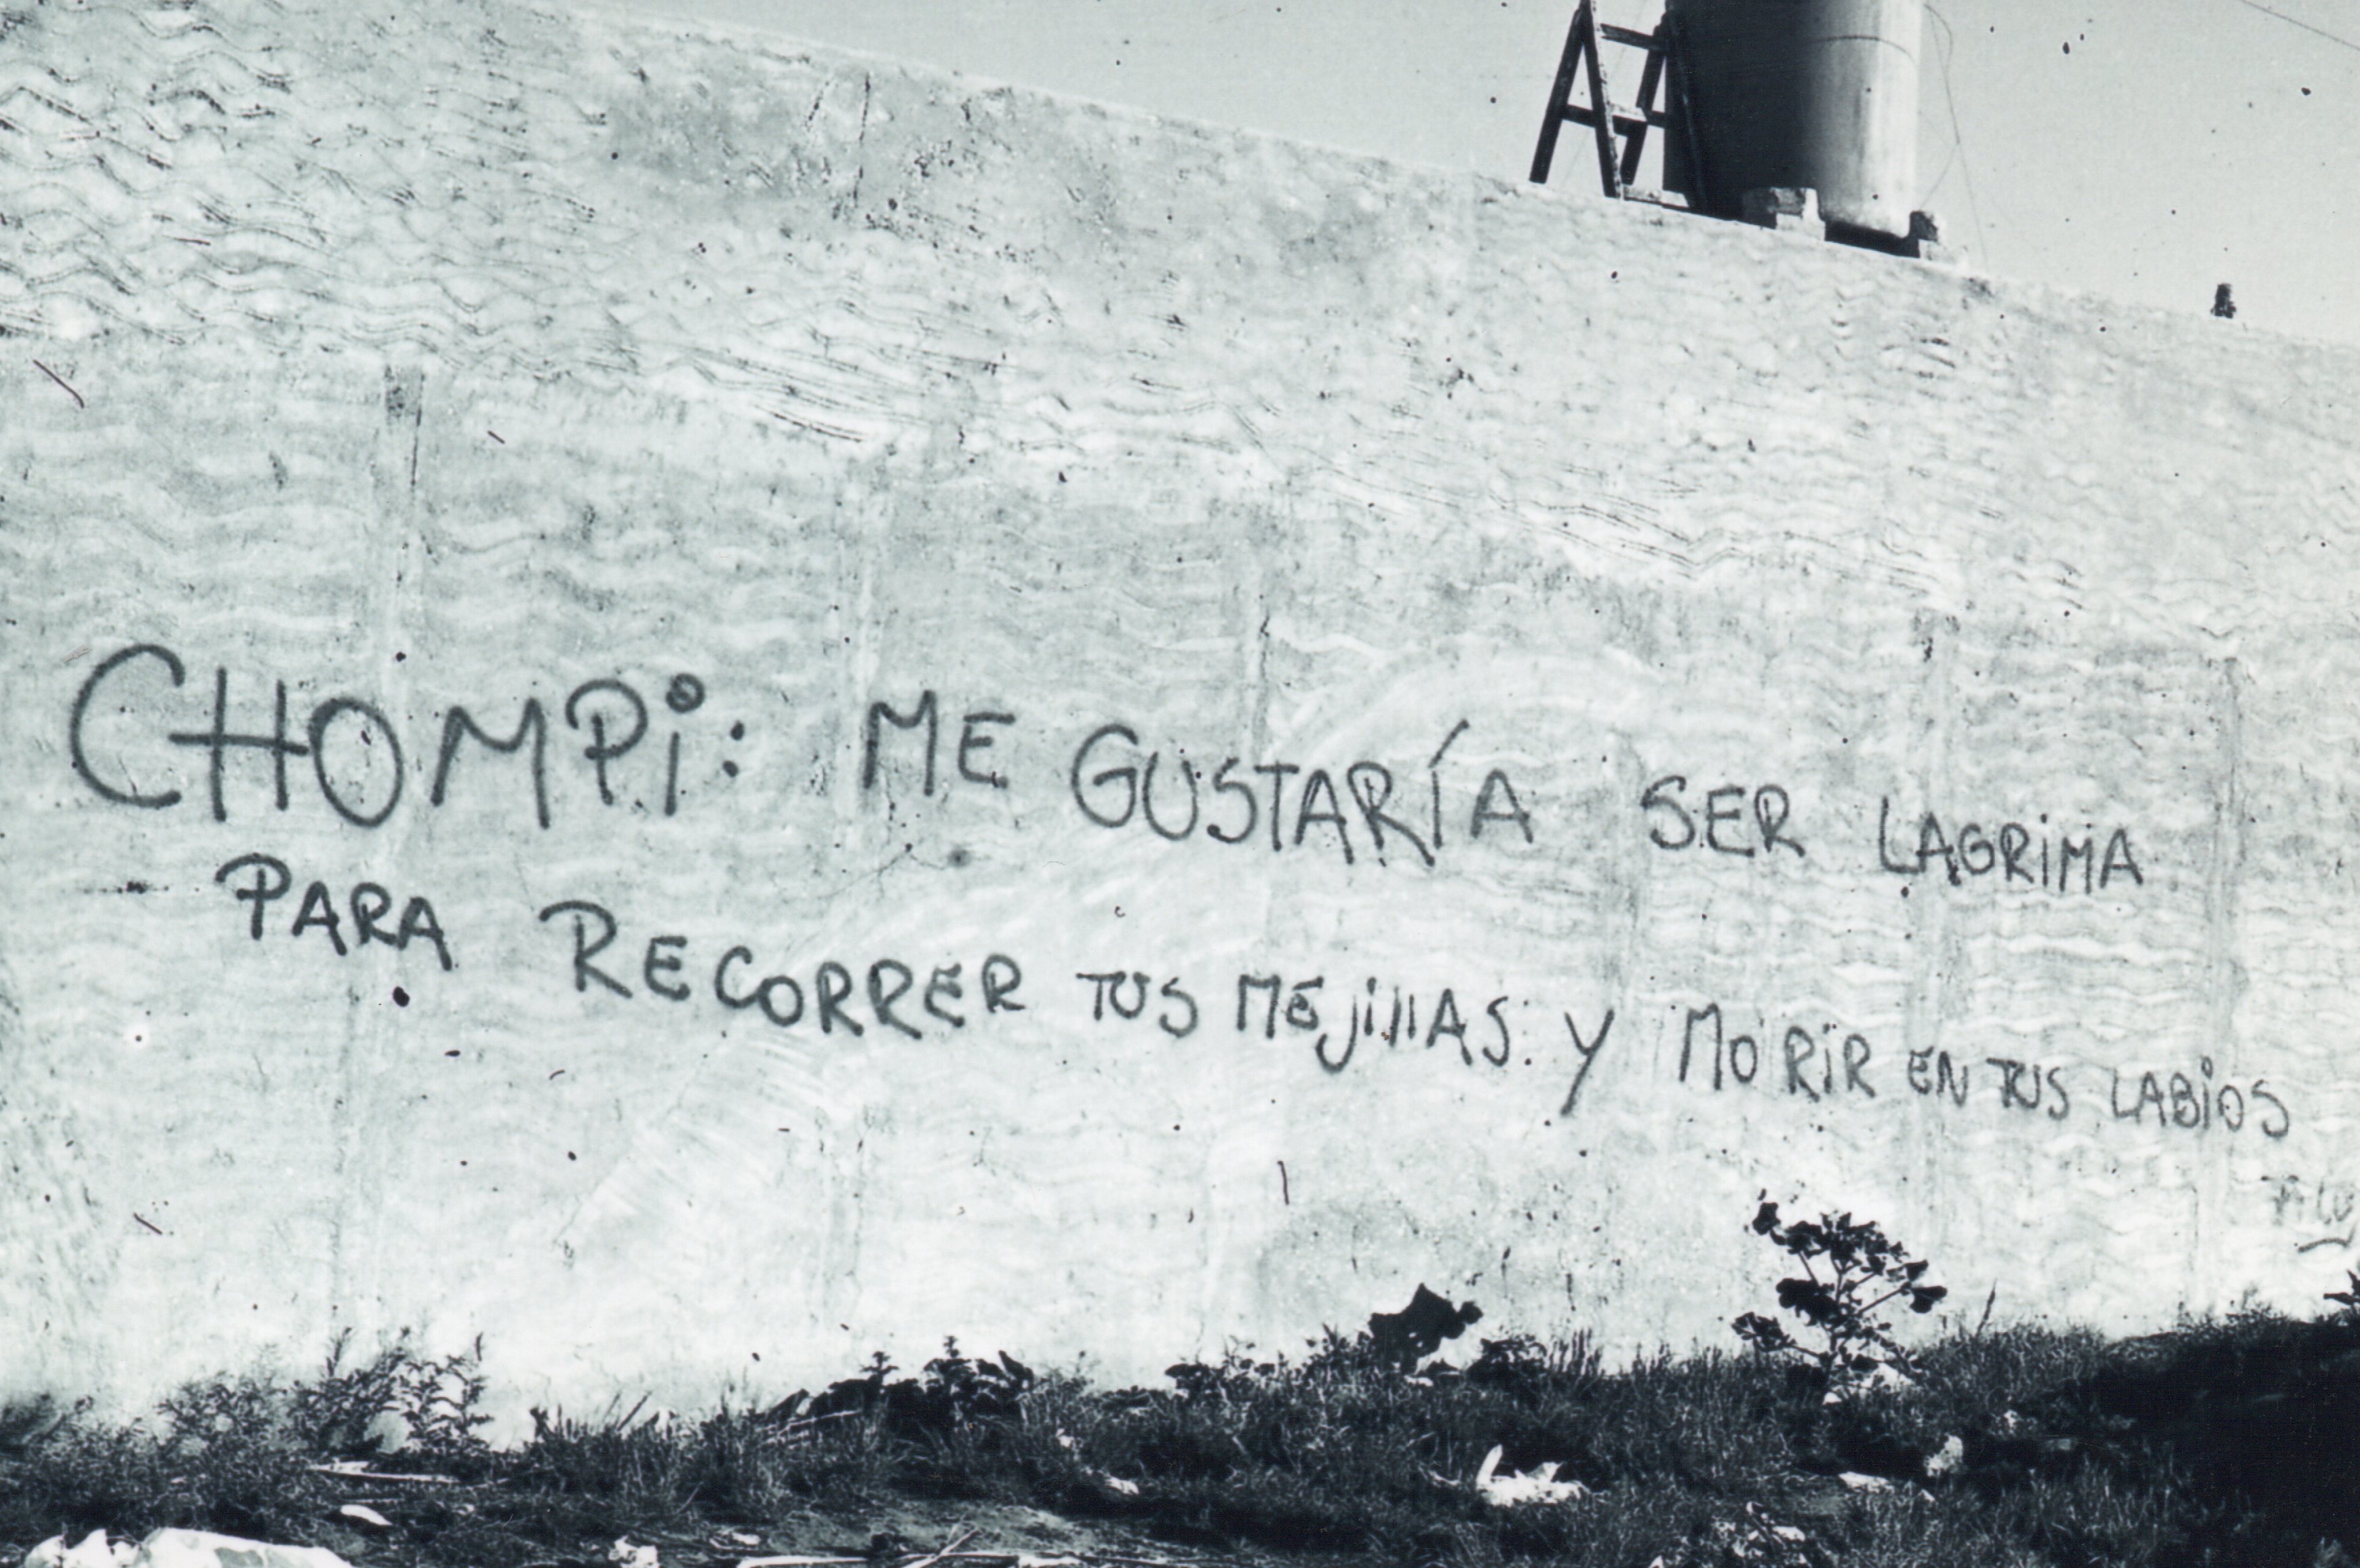 CHOMPi: ME GUSTARÍA SER LAGRiMA
PARA RECORRER TUS MEJillAS. Y MORiR EN TUS LABiOS